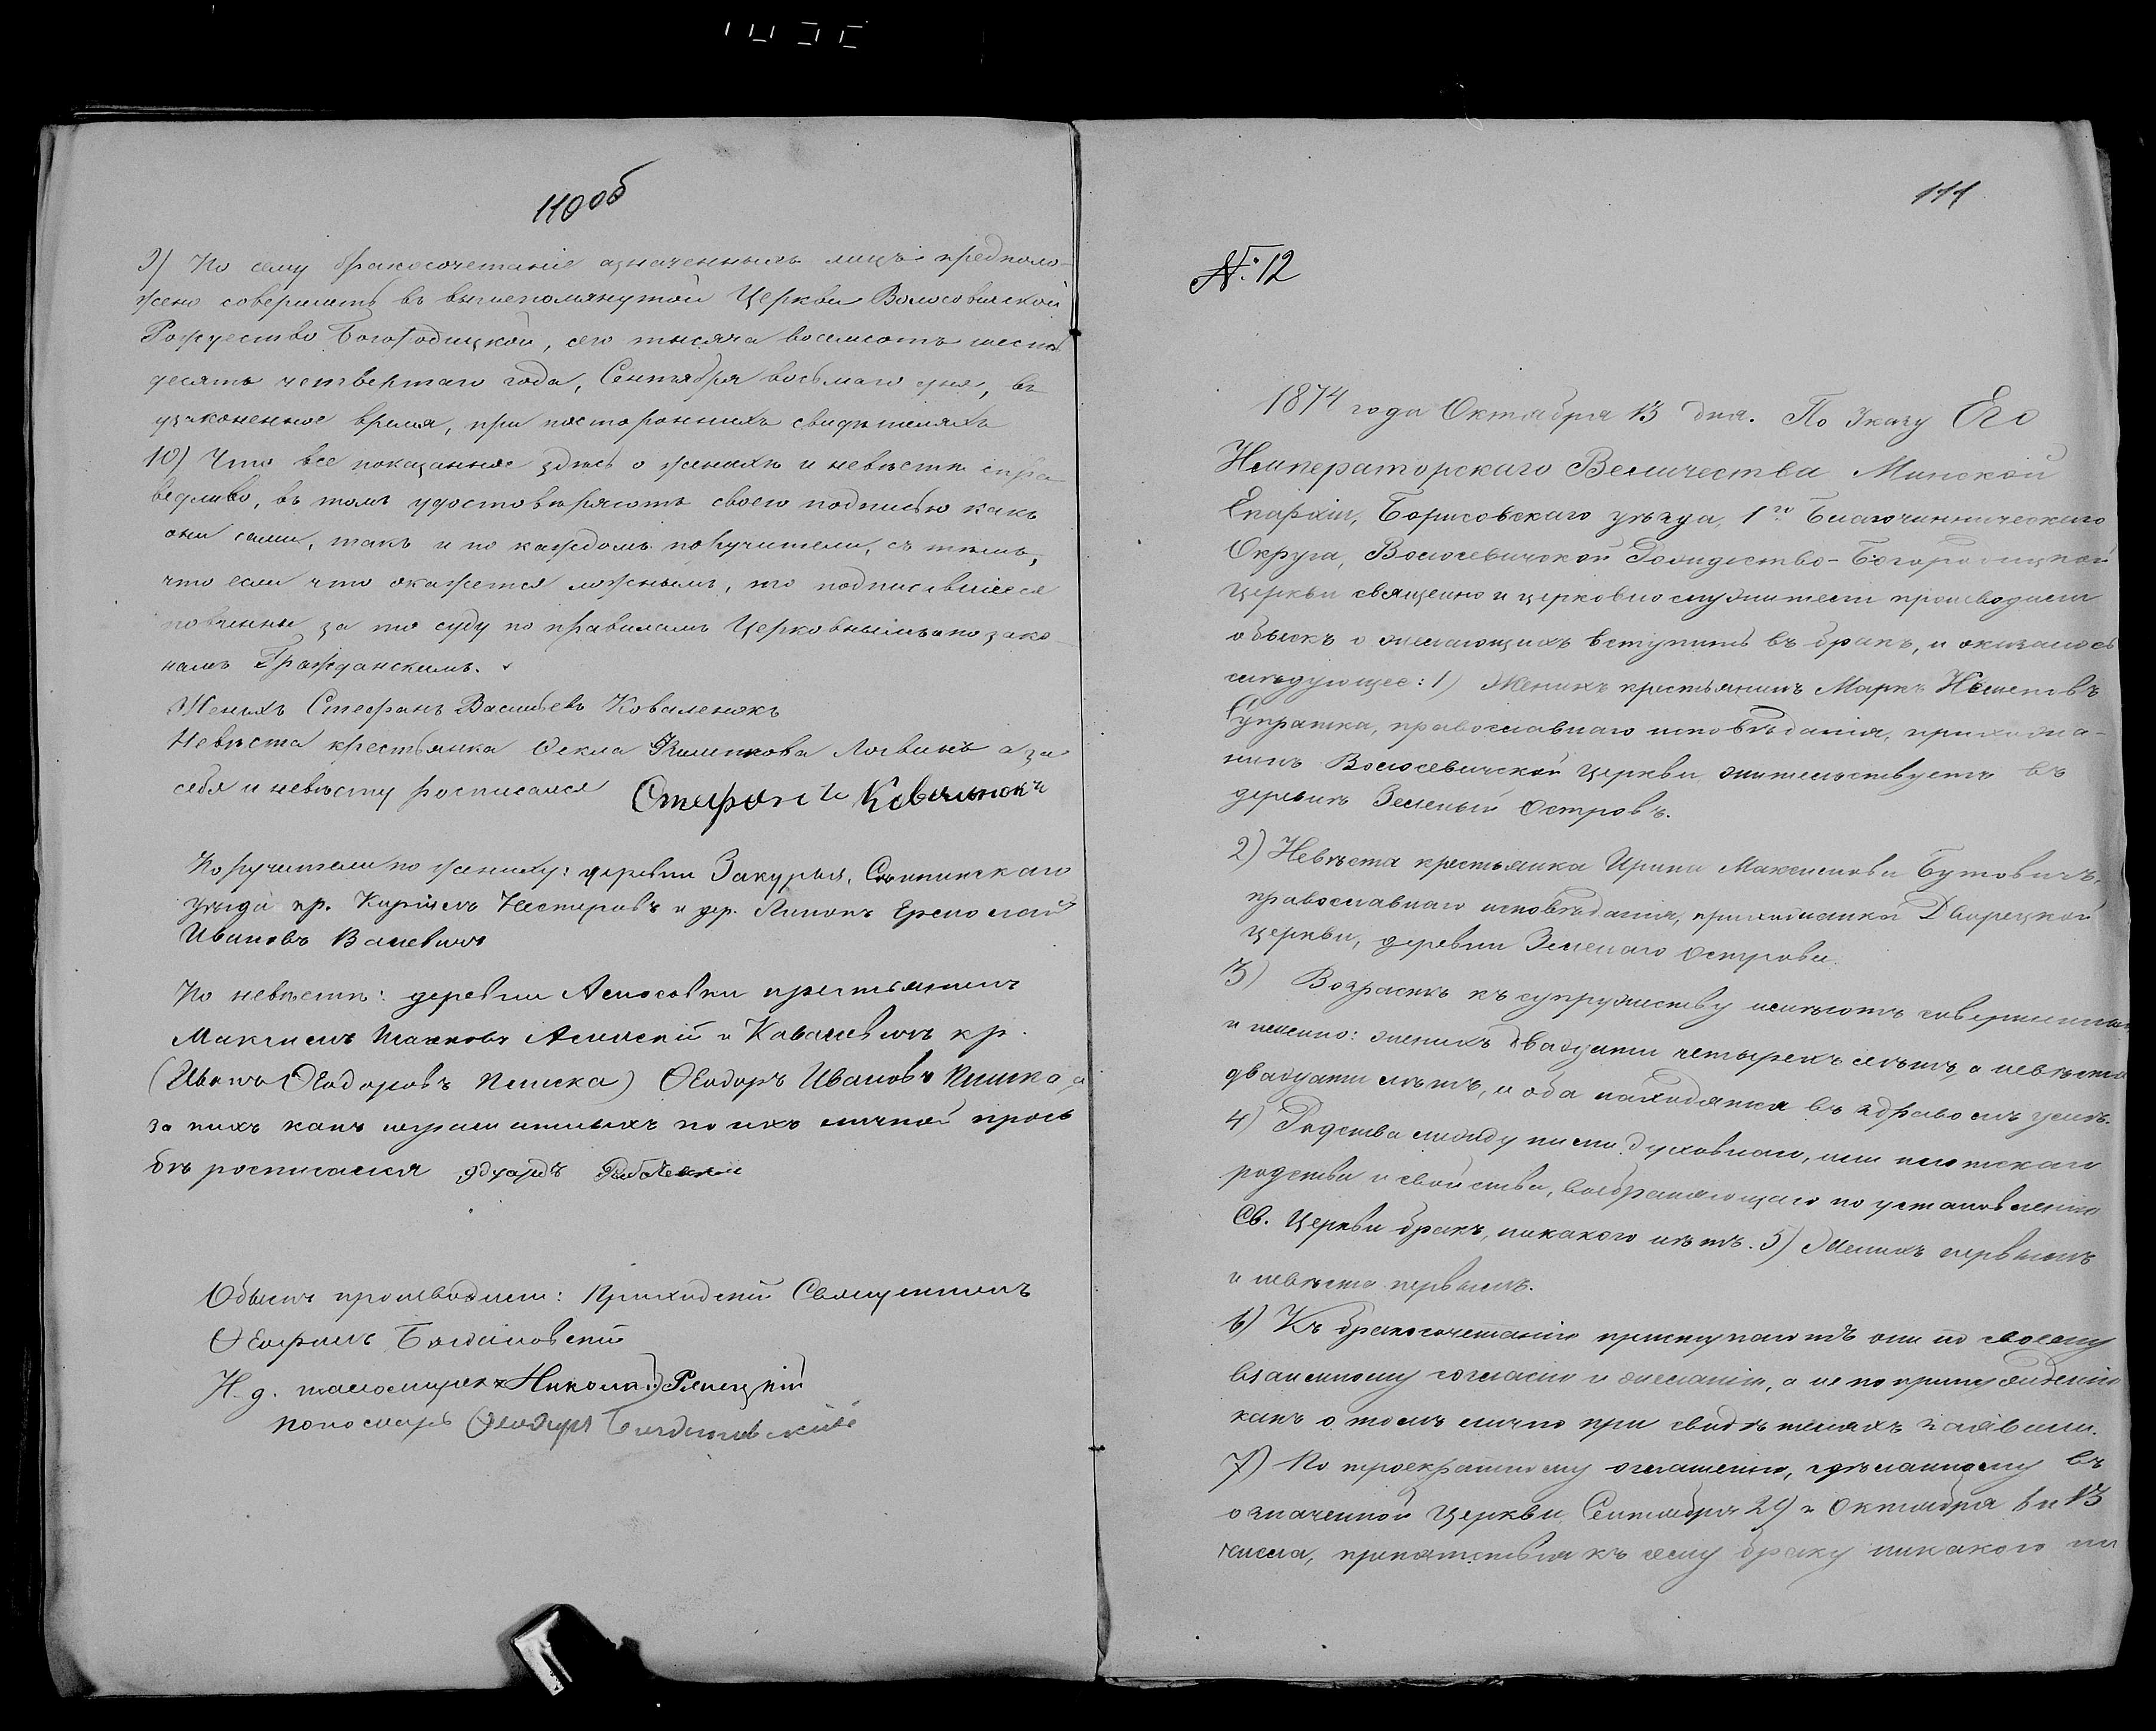 110 об
9) По сему бракосочетаніе означенныхъ лицъ предполо-
жено совершить въ вышепомянутой Церкви Волосевичской
Рождество Богородицкой, сего тысяча восемсотъ
десятъ четвертаго года, Сентября восьмаго дня, въ
узаконенное время, при постороннихъ свидѣтеляхъ
10) Что все показанное здѣсь о женихѣ и невѣстѣ спра
ведливо, въ томъ удостовѣряютъ своею подписью какъ
они сами, такъ и по каждомъ поручители, съ тѣмъ,
что если что окажется ложнымъ, то подписавшіеся
повинны за то суду по правиламъ Церковнымъ и по зако-
намъ Гражданскимъ.
Женихъ Стефанъ Васильевъ Коваленокъ
Невѣста крестьянка Ѳекла а за
себя и невѣсту росписался Стефанъ Коваленокъ
Поручители по жениху: деревни Сѣннинскаго
уѣзда кр. Нестеровъ и дер. Ермолай
Ивановъ
По невѣстѣ: деревни крестьянинъ
Максимъ и кр.
(Иванъ Ѳеодоровъ) Ѳеодоръ Ивановъ а
за нихъ какъ неграматныхъ по ихъ личной прось
бѣ росписался Эдуардъ
Обыскъ производили: Приходскій Священникъ
Ѳеофилъ
И. д. псаломщика Николай
Пономарь Ѳеодоръ
111
№ 12
1874 года Октября 13 дня. По Указу Его
Императорскаго Величества Минской
Епархіи, Борисовскаго уѣзда, 1го Благочинническаго
Округа, Волосевичской Рождество-Богородицкой
Церкви священно и церковно служители производили
обыскъ о желающихъ вступить въ бракъ, и оказалось
слѣдующее: 1) Женихъ крестьянинъ Маркъ
православнаго исповѣданія, прихожа-
нинъ Волосевичской Церкви, жительствуетъ въ
деревнѣ Зеленый Островъ.
2) Невѣста крестьянка Ирина Максимова Бутовичъ,
православнаго исповѣданія, прихожанка Дворецкой
Церкви, деревни Зеленаго Острова.
3) Возрастъ къ супружеству имѣютъ совершенный
и именно: женихъ двадцати четырехъ лѣтъ, а невѣста
двадцати лѣтъ, и оба находятся въ здравомъ умѣ.
4) Родства между ними духовнаго, или плотскаго
родства и свойства, возбраняющаго по установленію
Св. Церкви бракъ, никакого нѣтъ. 5) Женихъ первымъ
и невѣста первымъ.
6) Къ бракосочетанію приступаютъ они по своему
взаимному согласію и желанію, а не по принужденію
какъ о томъ лично при свидѣтеляхъ заявили.
7) По троекратному оглашенію, сдѣланному въ
означенной Церкви Сентября 29 и Октября 6 и 13
числа, препятствія къ сему браку никакого ни